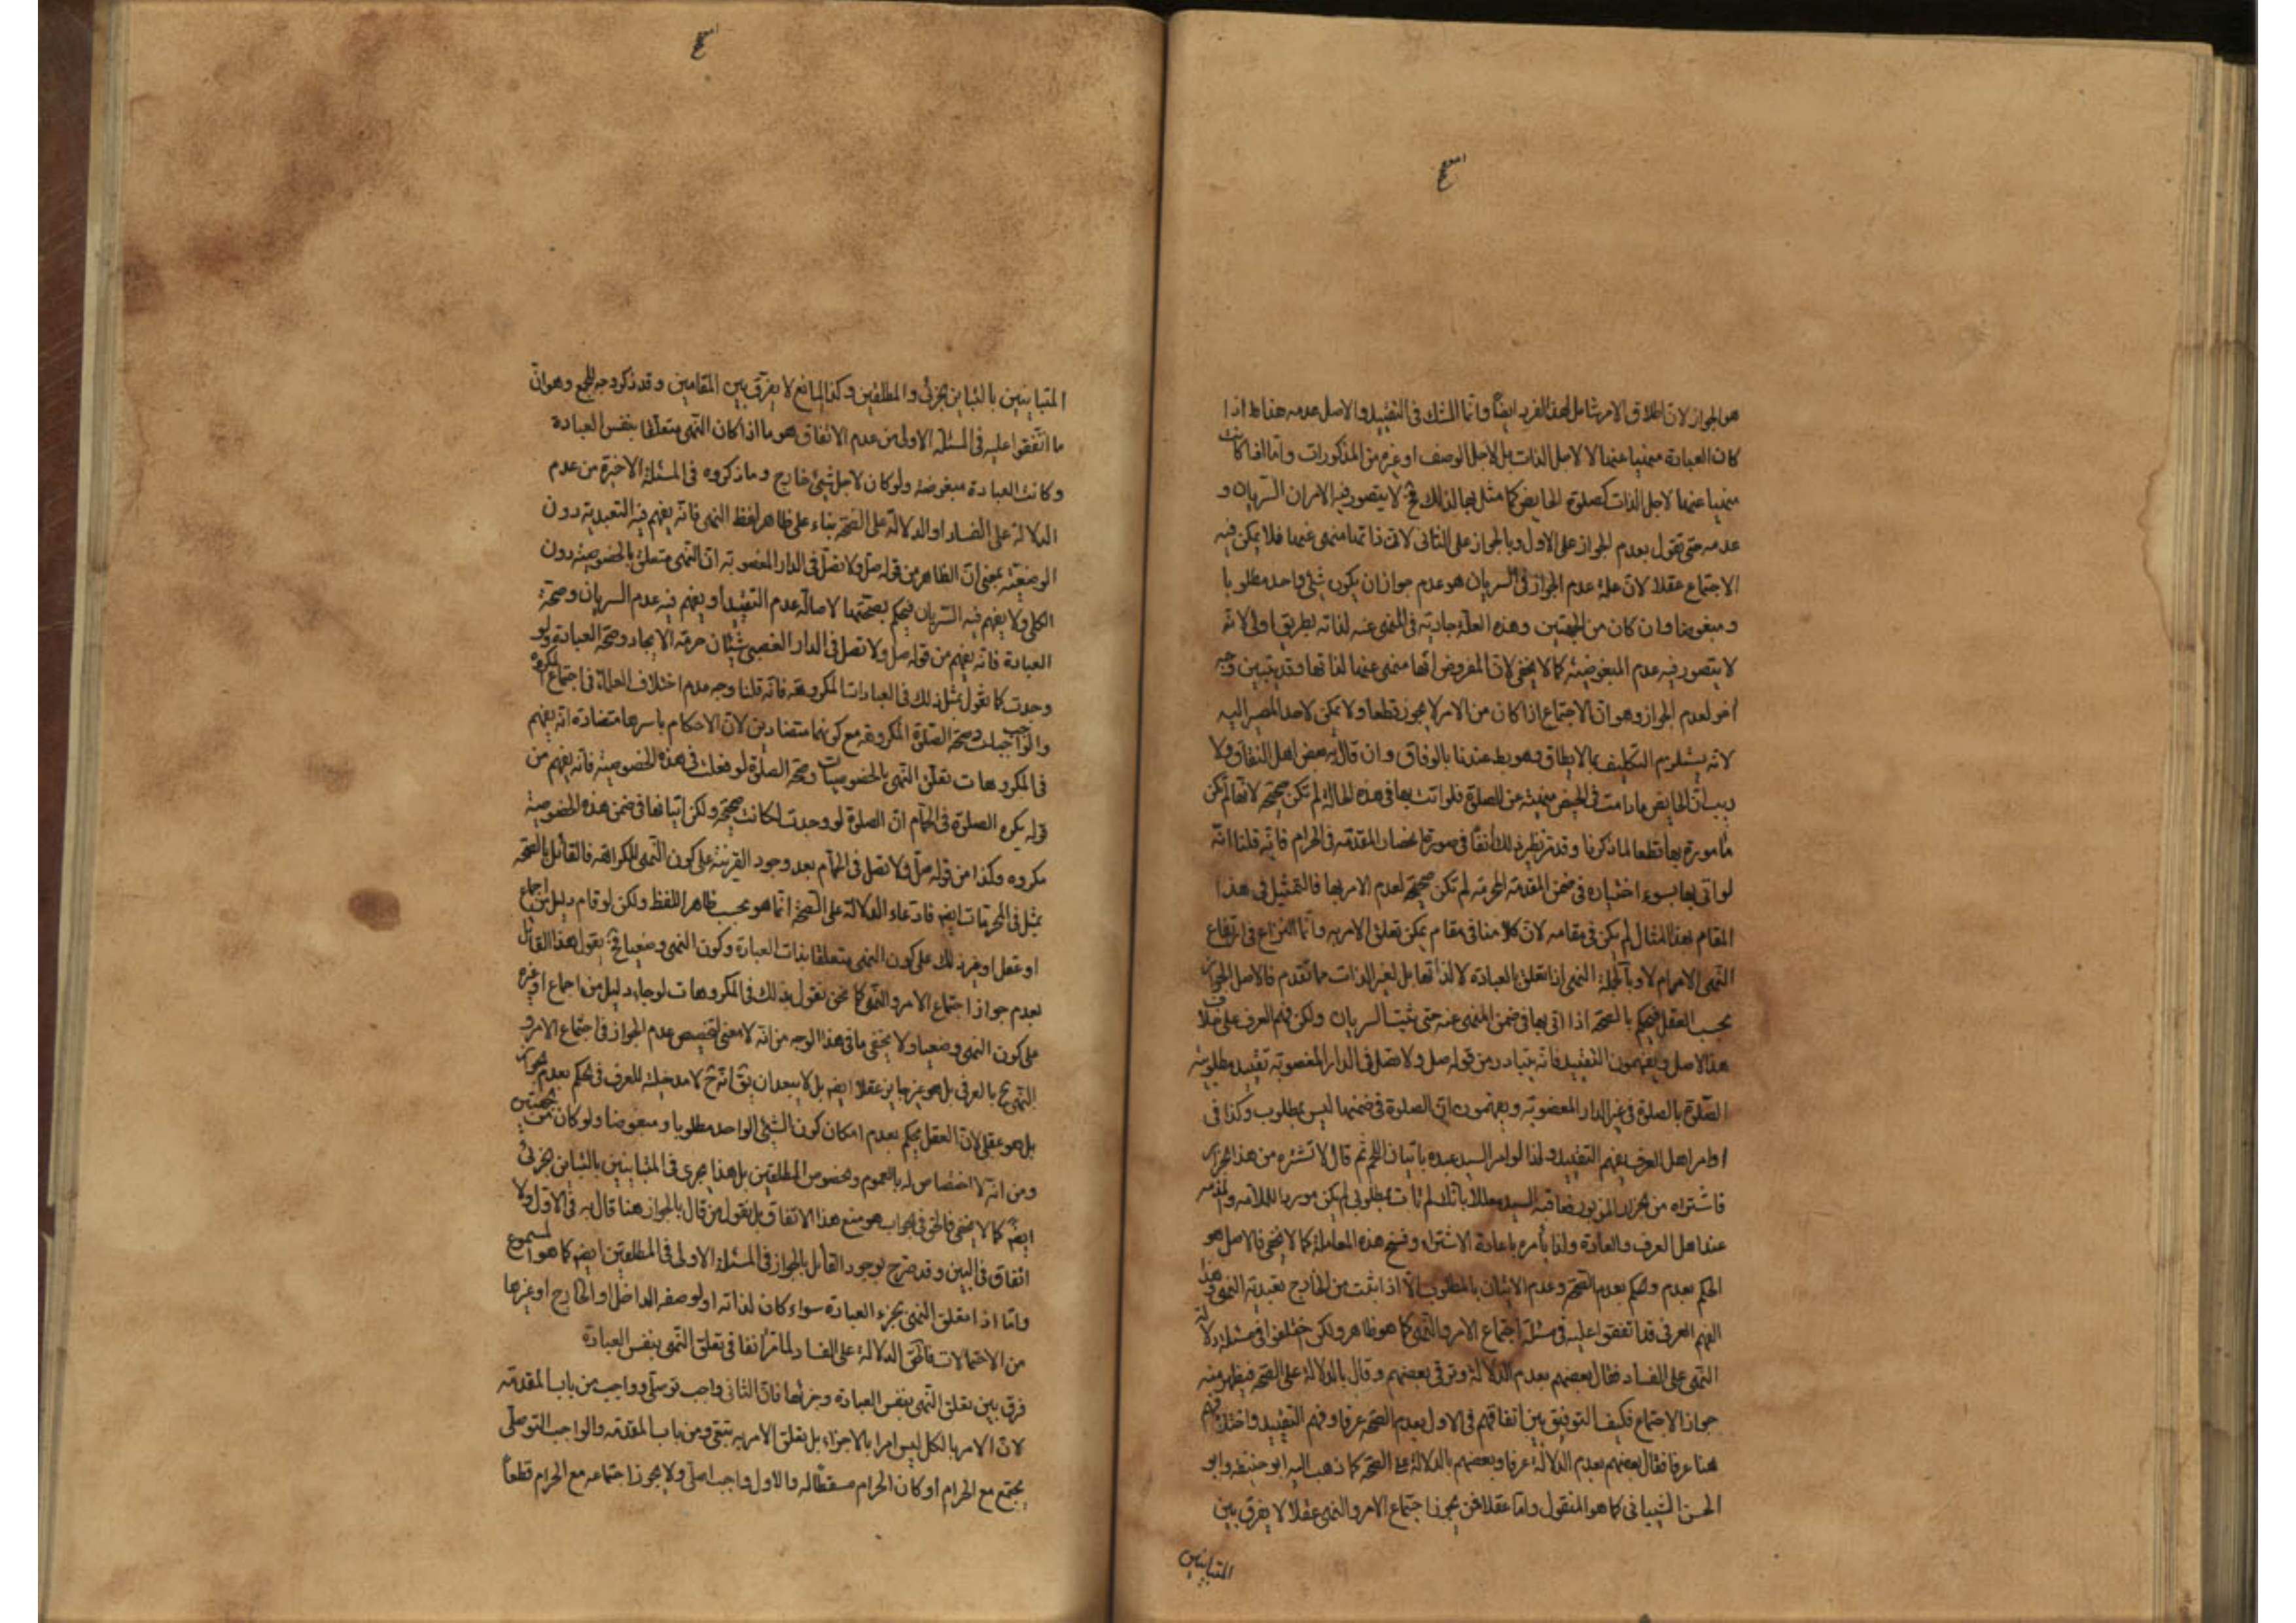 هو الجواز لان اطلاق الامر شامل لهذا الفرد ايضا وانما الشك فى التقييد والاصل عدمه هذا اذا
كان العبادة منهيا عنها لا لاجل الذات بل لاجل الوصف او غيره من المذكورات واما اذا كانت
منهيا عنها لاجل الذات كصلوة الحايض كما مثل بها لذلك فح لا يتصور فيه الامران السريان و
عدمه حتى تقول بعدم الجواز على الاول وبالجواز على الثانى لان ذاتها منهى عنها فلا يمكن فيه
الاجتماع عقلا لان علة عدم الجواز فى السريان هو عدم جواز ان يكون شئ واحد مطلوبا
ومبغوضا وان كان من الجهتين وهذه العلة جارية فى المنهى عنه لذاته بطريق اولى لانه
لا يتصور فيه عدم المبغوضية كما لا يخفى لان المفروض انها منهى عنها لذاتها وقد يتبين وجه
اخر لعدم الجواز وهو ان الاجتماع اذا كان من الامر لا يجوز قطعا ولا يمكن لاحد المصير اليه
لانه يستلزم التكليف بما لا يطاق وهو بط عندنا بالوفاق وان قال به بعض اهل النفاق ولا
ريب ان الحايض ما دامت فى الحيض منهية عن الصلوة فلو اتت بها فى هذه الحالة لم تكن صحيحة لانها لم تكن
مامورة بها قطعا لما ذكرنا وقد مر نظير ذلك انفا فى صورة انحصار المقدمة فى الحرام فانه قلنا انه
لو اتى بها بسوء اختياره فى ضمن المقدمة المحرمة لم تكن صحيحة لعدم الامر بها فالتمثيل فى هذا
المقام بهذا المثال لم يكن فى مقامه لان كلامنا فى مقام يمكن تعلق الامر به وانما النزاع فى ارتفاع
النهى الامر ام لا وبالجملة النهى اذا تعلق بالعبادة لا لذاتها بل لغير الذات مما تقدم فالاصل الجواز
بحسب العقل فيحكم بالصحة اذا اتى بها فى ضمن المنهى عنه حتى يثبت السريان ولكن فهم العرف على خلاف
هذا الاصل ويفهمون التقييد فانه يتبادر من قوله صل ولا تصل فى الدار المغصوبة تقييد مطلوبية
الصلوة بالصلوة فى غير الدار المغصوبة ويفهمون ان الصلوة فى ضمنها ليس بمطلوب وكذا فى
اوامر اهل العرف يفهم التقييد ولذا لو امر السيد عبده باتيان اللحم ثم قال لا تشتره من هذا الجزار
فاشتراه من الجزار المزبور فعاقبه السيد معللا بانك لم تات بمطلوبى لم يكن موردا للملامة والمذمة
عند اهل العرف والعادة ولذا يأمره باعادة الاشتراء وفسخ هذه المعاملة كما لا يخفى فالاصل هو
الحكم بعدم وحكم بعدم الصحة وعدم الاتيان بالمطلوب الا اذا ثبت من الخارج تعبدية النهى وهذا
الفهم العرفى قد اتفقوا عليه فى مسئلة اجتماع الامر والنهى كما هو ظاهر ولكن اختلفوا فى مسئلة دلالة
النهى على الفساد فقال بعضهم بعدم الدلالة وترقى بعضهم وقال بالدلالة على الصحة فيظهر منه
جواز الاجتماع فكيف التوفيق بين اتفاقهم فى الاول بعدم الصحة عرفا وفهم التقييد واختلافهم
هنا عرفا فقال بعضهم بعدم الدلالة عرفا وبعضهم بالدلالة على الصحة كما ذهب اليه ابو حنيفة وابو
الحسن الشيبانى كما هو المنقول واما عقلا فمن يجوز اجتماع الامر والنهى عقلا لا يفرق بين
المتباينين
المتباينين بالتباين الجزئى والمطلقين وكذا المانع لا يفرق بين المقامين وقد ذكر وجه للجمع وهو ان
ما اتفقوا عليه فى المسئلة الاولى من عدم الاتفاق هو ما اذا كان النهى متعلقا بنفس العبادة
وكانت العبادة مبغوضة ولو كان لاجل شئ خارج وما ذكروه فى المسئلة الاخيرة من عدم
الدلالة على الفساد او الدلالة على الصحة بناء على ظاهر لفظ النهى فانه يفهم فيه التعبدية دون
الوضعية بمعنى ان الظاهر من قوله صل ولا تصل فى الدار المغصوبة ان النهى متعلق بالخصوصية دون
الكلى ولا يفهم فيه السريان فيحكم بصحتها لاصالة عدم التقييد او يفهم فيه عدم السريان وصحة
العبادة فانه يفهم من قوله صل ولا تصل فى الدار الغصبى شيئان حرمة الايجاد وصحة العبادة ولو
وجدت كما نقول بمثل ذلك فى العبادات المكروهة فانه قلنا وجه عدم اختلاف العلماء فى اجتماع المكروه
والواجبات وصحة الصلوة المكروهة مع كونهما متضادين لان الاحكام باسرها متضادة انه يفهم
فى المكروهات تعلق النهى بالخصوصيات وصحة الصلوة لو فعلت فى هذه الخصوصية فانه يفهم من
قوله يكره الصلوة فى الحمام ان الصلوة لو وجدت لكانت صحيحة ولكن اتيانها فى ضمن هذه الخصوصية
مكروه وكذا من قوله صل ولا تصل فى الحمام بعد وجود القرينة على كون النهى للكراهة فالقائل بالصحة
يمثل فى المحرمات ايضا فادعاء الدلالة على الصحة انما هو بحسب ظاهر اللفظ ولكن لو قام دليل من اجماع
او عقل او غير ذلك على كون النهى متعلقا بذات العبادة وكون النهى وضعيا فح يقول هذا القائل
بعدم جواز اجتماع الامر والنهى كما نحن نقول بذلك فى المكروهات لو جاء دليل من اجماع او غيره
على كون النهى وضعيا ولا يخفى ما فى هذا الوجه من انه لا معنى لتخصيص عدم الجواز فى اجتماع الامر و
النهى ح بالعرفى بل هو غير جايز عقلا ايضا بل لا يبعد ان يق انه ح لا مدخلية للعرف فى الحكم بعدم الجواز
بل هو عقلى لان العقل يحكم بعدم امكان كون الشئ الواحد مطلوبا ومبغوضا ولو كان من جهتين
ومن انه لا اختصاص له بالعموم وخصوص المطلقين بل هذا يجرى فى المتباينين بالتباين الجزئى
ايضا كما لا يخفى فالحق فى الجواب هو منع هذا الاتفاق بل نقول من قال بالجواز هنا قال به فى الاول ولا
اتفاق فى البين وقد صرح بوجود القائل بالجواز فى المسئلة الاولى فى المطلقين ايضا كما هو المسموع
واما اذا تعلق النهى بجزء العبادة سواء كان لذاته او لوصفه الداخل او الخارج او غيرها
من الاحتمالات فالحق الدلالة على الفساد لما مر انفا فى تعلق النهى بنفس العبادة
فرق بين تعلق النهى بنفس العبادة وجزئها فان الثانى واجب توصلى وواجب من باب المقدمة
لان الامر بالكل ليس امرا بالاجزاء بل تعلق الامر به تبعى ومن باب المقدمة والواجب التوصلى
يجتمع مع الحرام او كان الحرام مسقطا له والاول واجب اصلى ولا يجوز اجتماعه مع الحرام قطعا